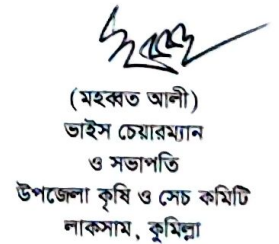 (মহব্বত আলী)
ভাইস চেয়ারম্যান
ও সভাপতি
উপজেলা কৃষি ও সেচ কমিটি
লাকসাম, কুমিল্লা